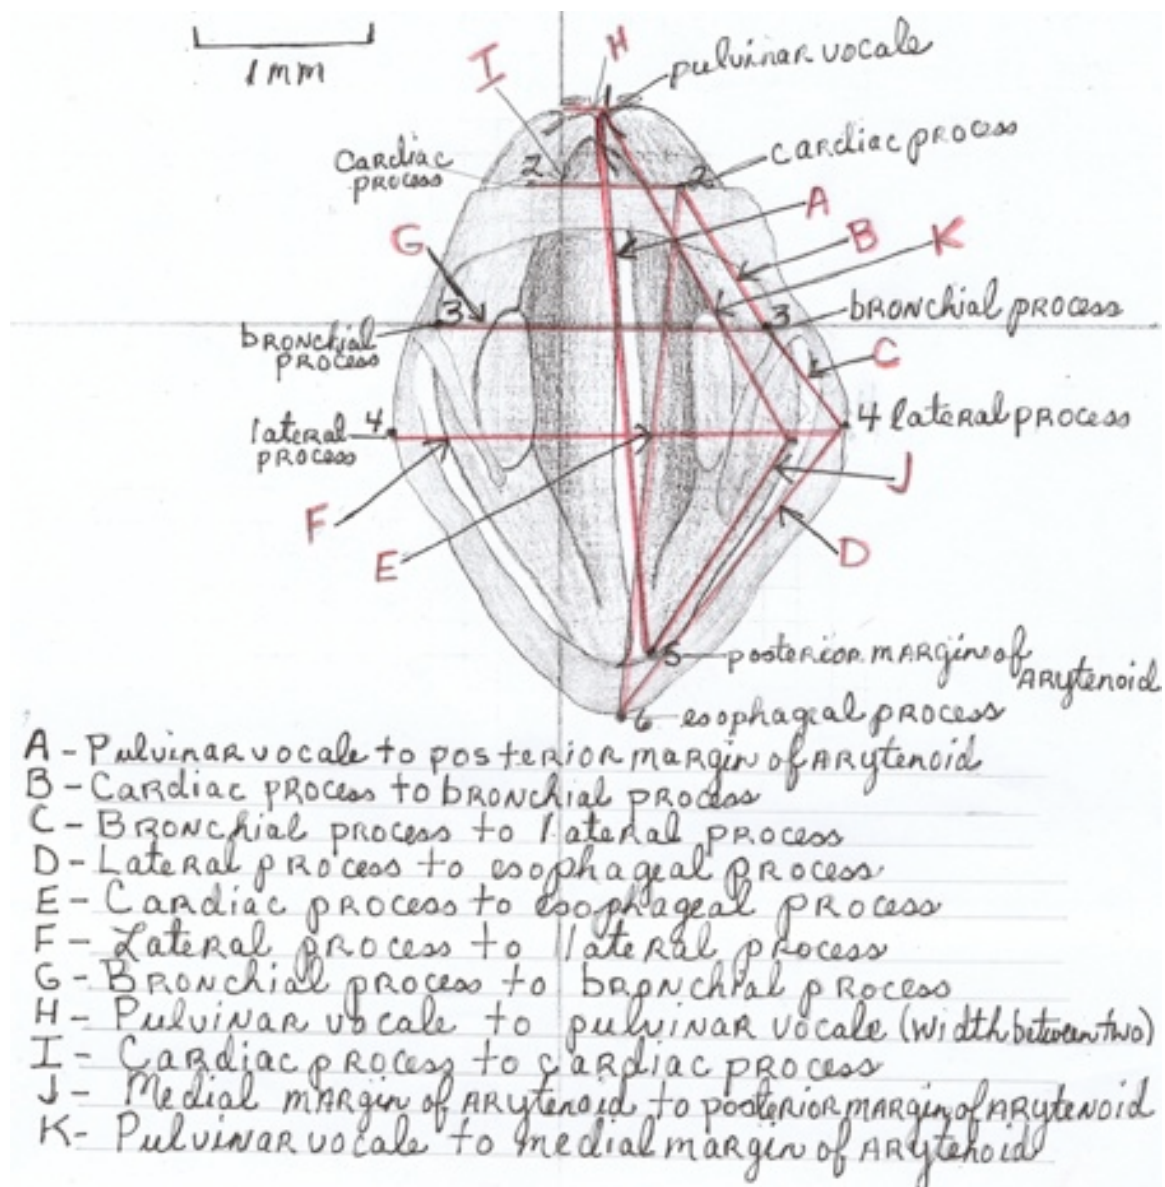 1 mm
H
I
pulvinar vocale
1
cardiac process
2
2
cardiac process
A
B
K
G
3
bronchial process
3
bronchial process
C
4
lateral process
4 lateral process
F
E
J
D
5 posterior margin of arytenoid
6 esophageal process
A - Pulvinar vocale to posterior margin of arytenoid
B - Cardiac process to bronchial process
C - Bronchial process to lateral process
D - Lateral process to esophageal process
E - Cardiac process to esophageal process
F - Lateral process to lateral process
G - Bronchial process to bronchial process
H - Pulvinar vocale to pulvinar vocale (width between two)
I - Cardiac process to cardiac process
J - Medial margin of arytenoid to posterior margin of arytenoid
K - Pulvinar vocale to medial margin of arytenoid